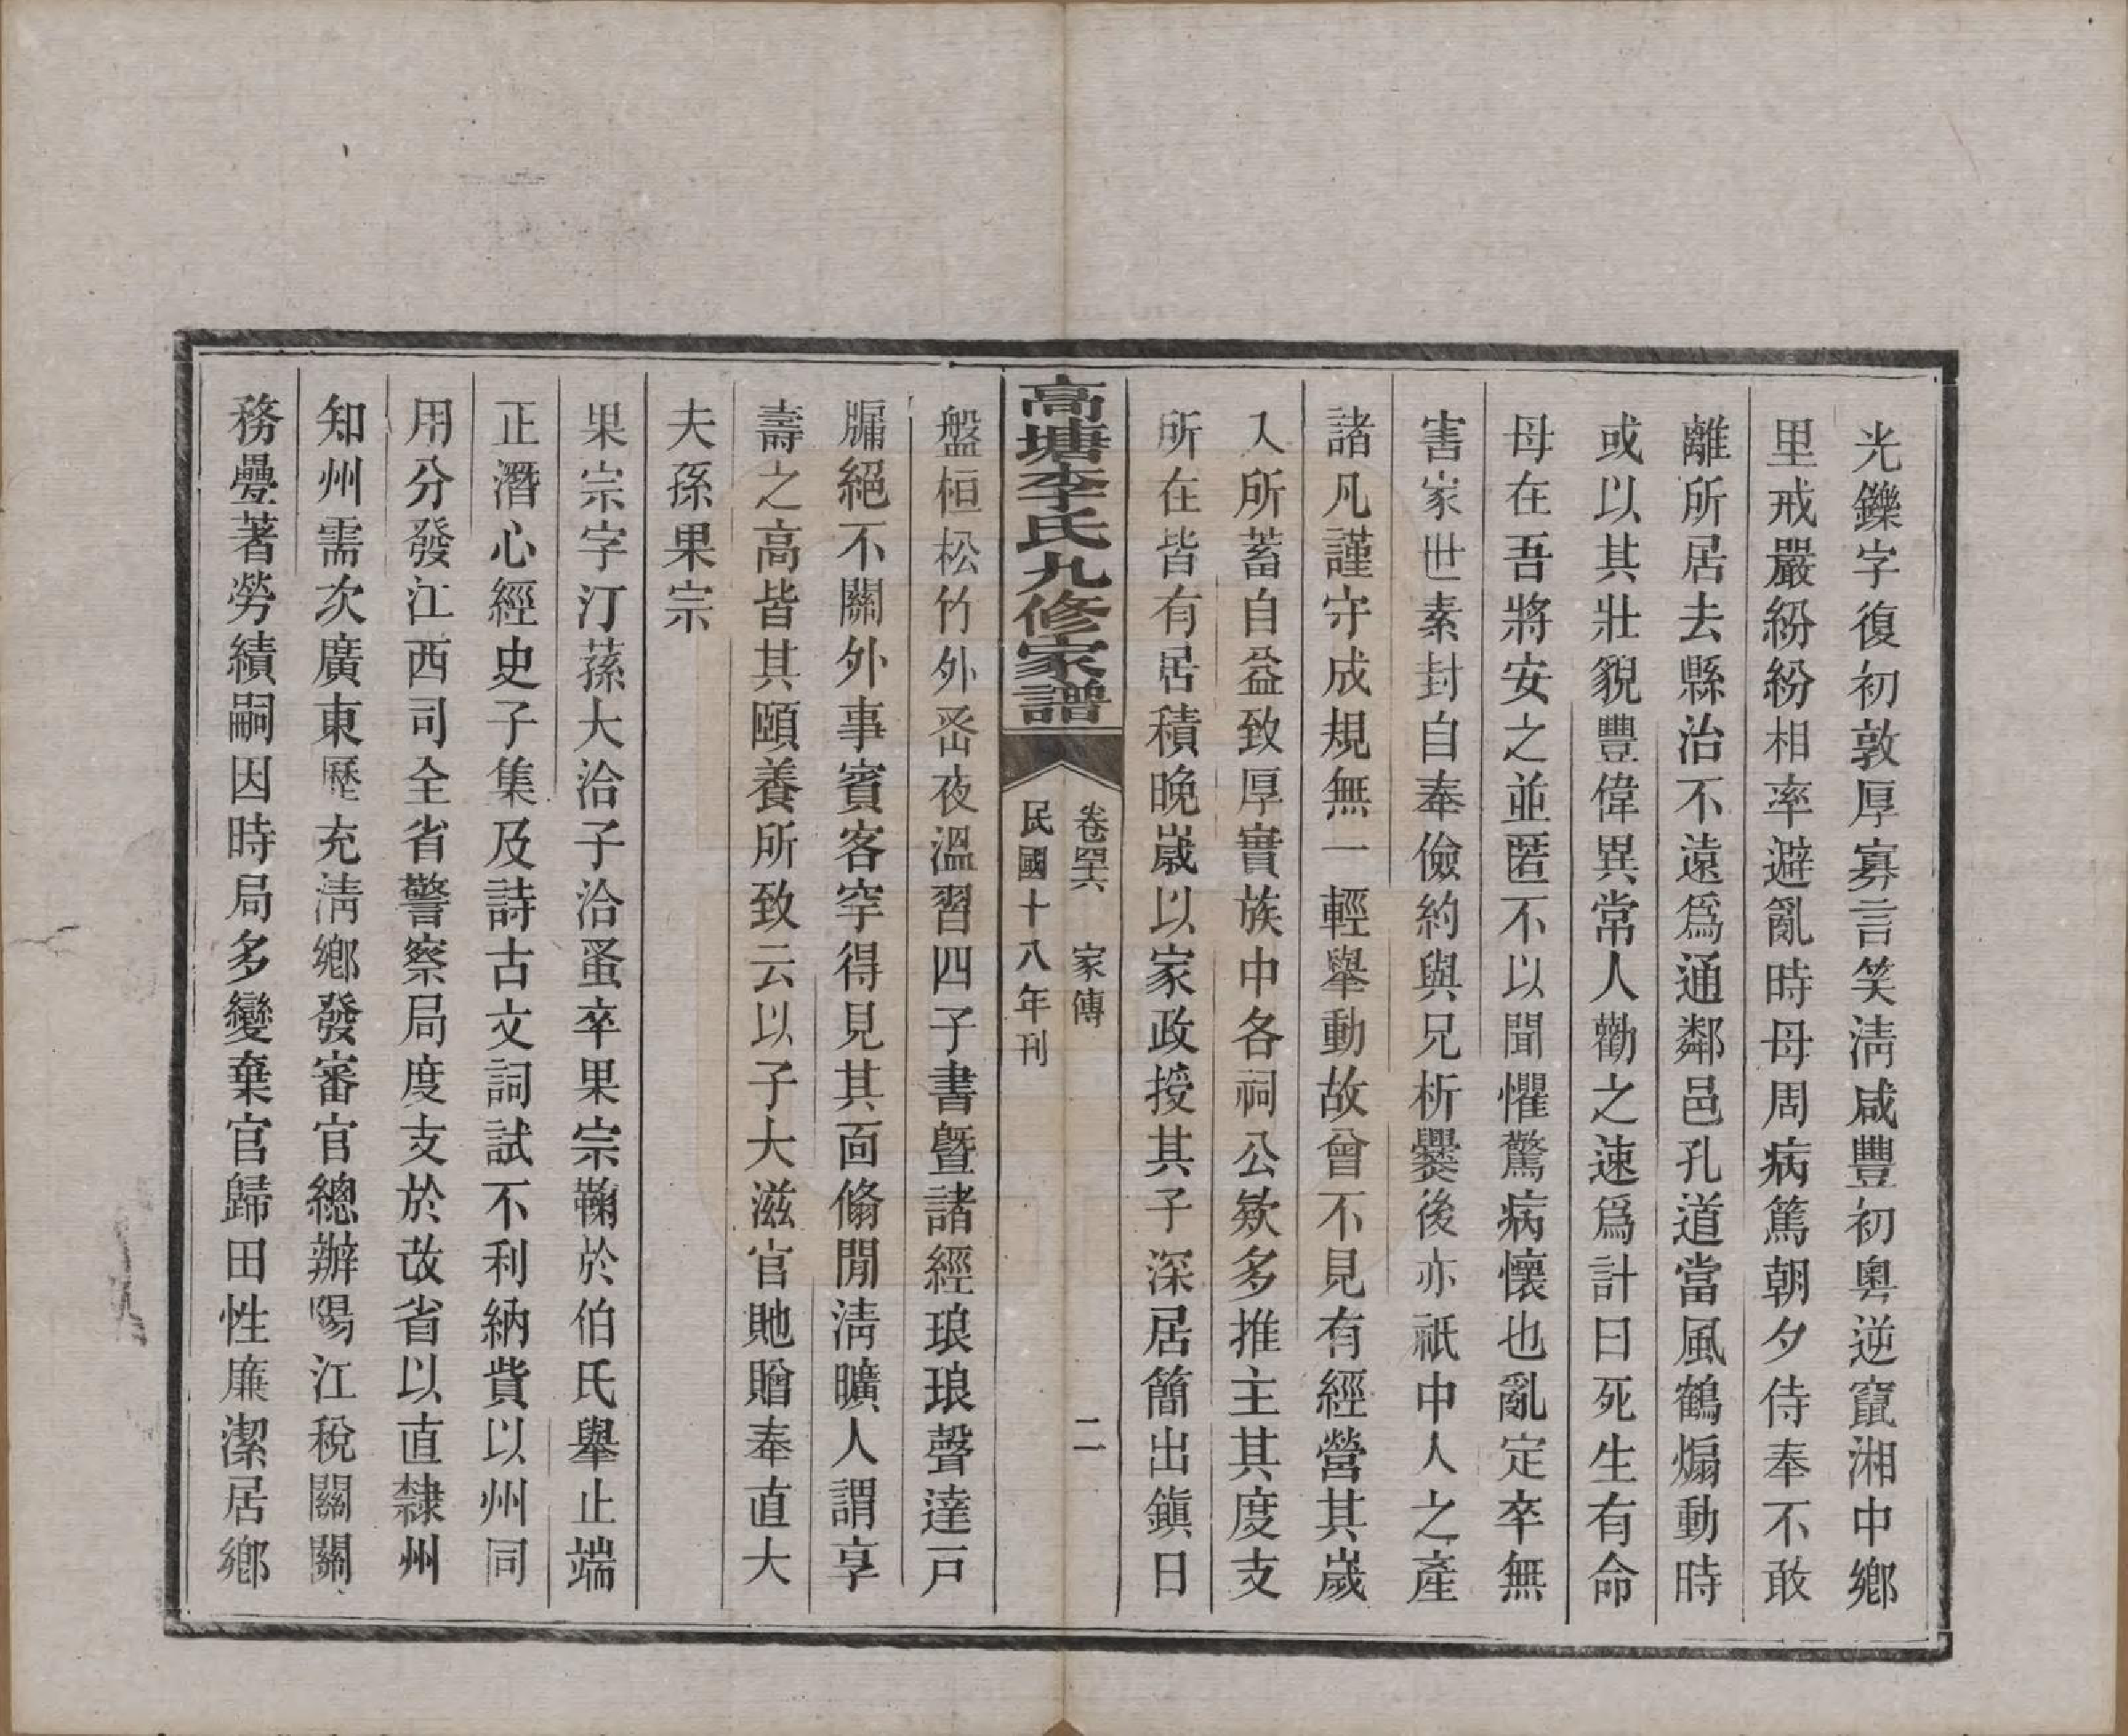 光鑠字復初敦厚寡言笑淸咸豐初粵逆竄湘中鄉
里戒嚴紛紛相率避亂時母周病篤朝夕侍奉不敢
離所居去縣治不遠爲通鄰邑孔道當風鶴煽動時
或以其壯貌豐偉異常人勸之速爲計曰死生有命
母在吾將安之並匿不以聞懼驚病懷也亂定卒無
害家世素封自奉儉約與兄析爨後亦祇中人之產
諸凡謹守成規無一輕舉動故曾不見有經營其歲
入所蓄自益致厚實族中各祠公欵多推主其度支
所在皆有居積晚歲以家政授其子深居簡出鎭日
高塘李氏九修家譜
卷四六 家傳
二
民國十八年刊
盤桓松竹外丞夜溫習四子書暨諸經琅琅聲達戸
牖絕不關外事賓客罕得見其面翛閒淸曠人謂享
壽之高皆其頤養所致云以子大滋官貤贈奉直大
夫孫果宗
果宗字汀蓀大洽子洽蚤卒果宗鞠於伯氏舉止端
正潛心經史子集及詩古文詞試不利納貲以州同
用分發江西司全省警察局度支於改省以直隸州
知州需次廣東歷充淸鄉發審官總辦陽江稅關關
務疊著勞績嗣因時局多變棄官歸田性廉潔居鄉